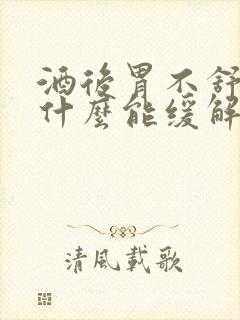 酒後胃不舒
什麼能緩解
清風載歌